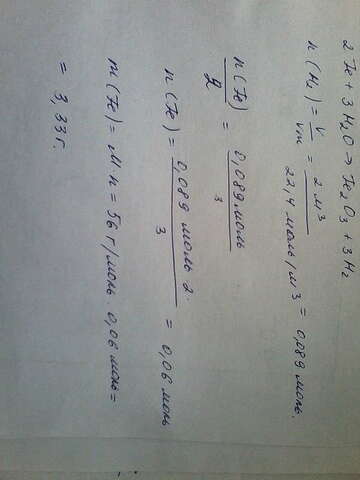 2 Fe + 3 H₂O → Fe₂O₃ + 3 H₂
n (H₂) = V / Vм = 2 м³ / 22,4 моль/м³ = 0,089 моль.
n (Fe) / 2 = 0,089 моль / 3
n (Fe) = 0,089 моль · 2 / 3 = 0,06 моль
m (Fe) = M · n = 56 г/моль · 0,06 моль =
= 3,33 г.